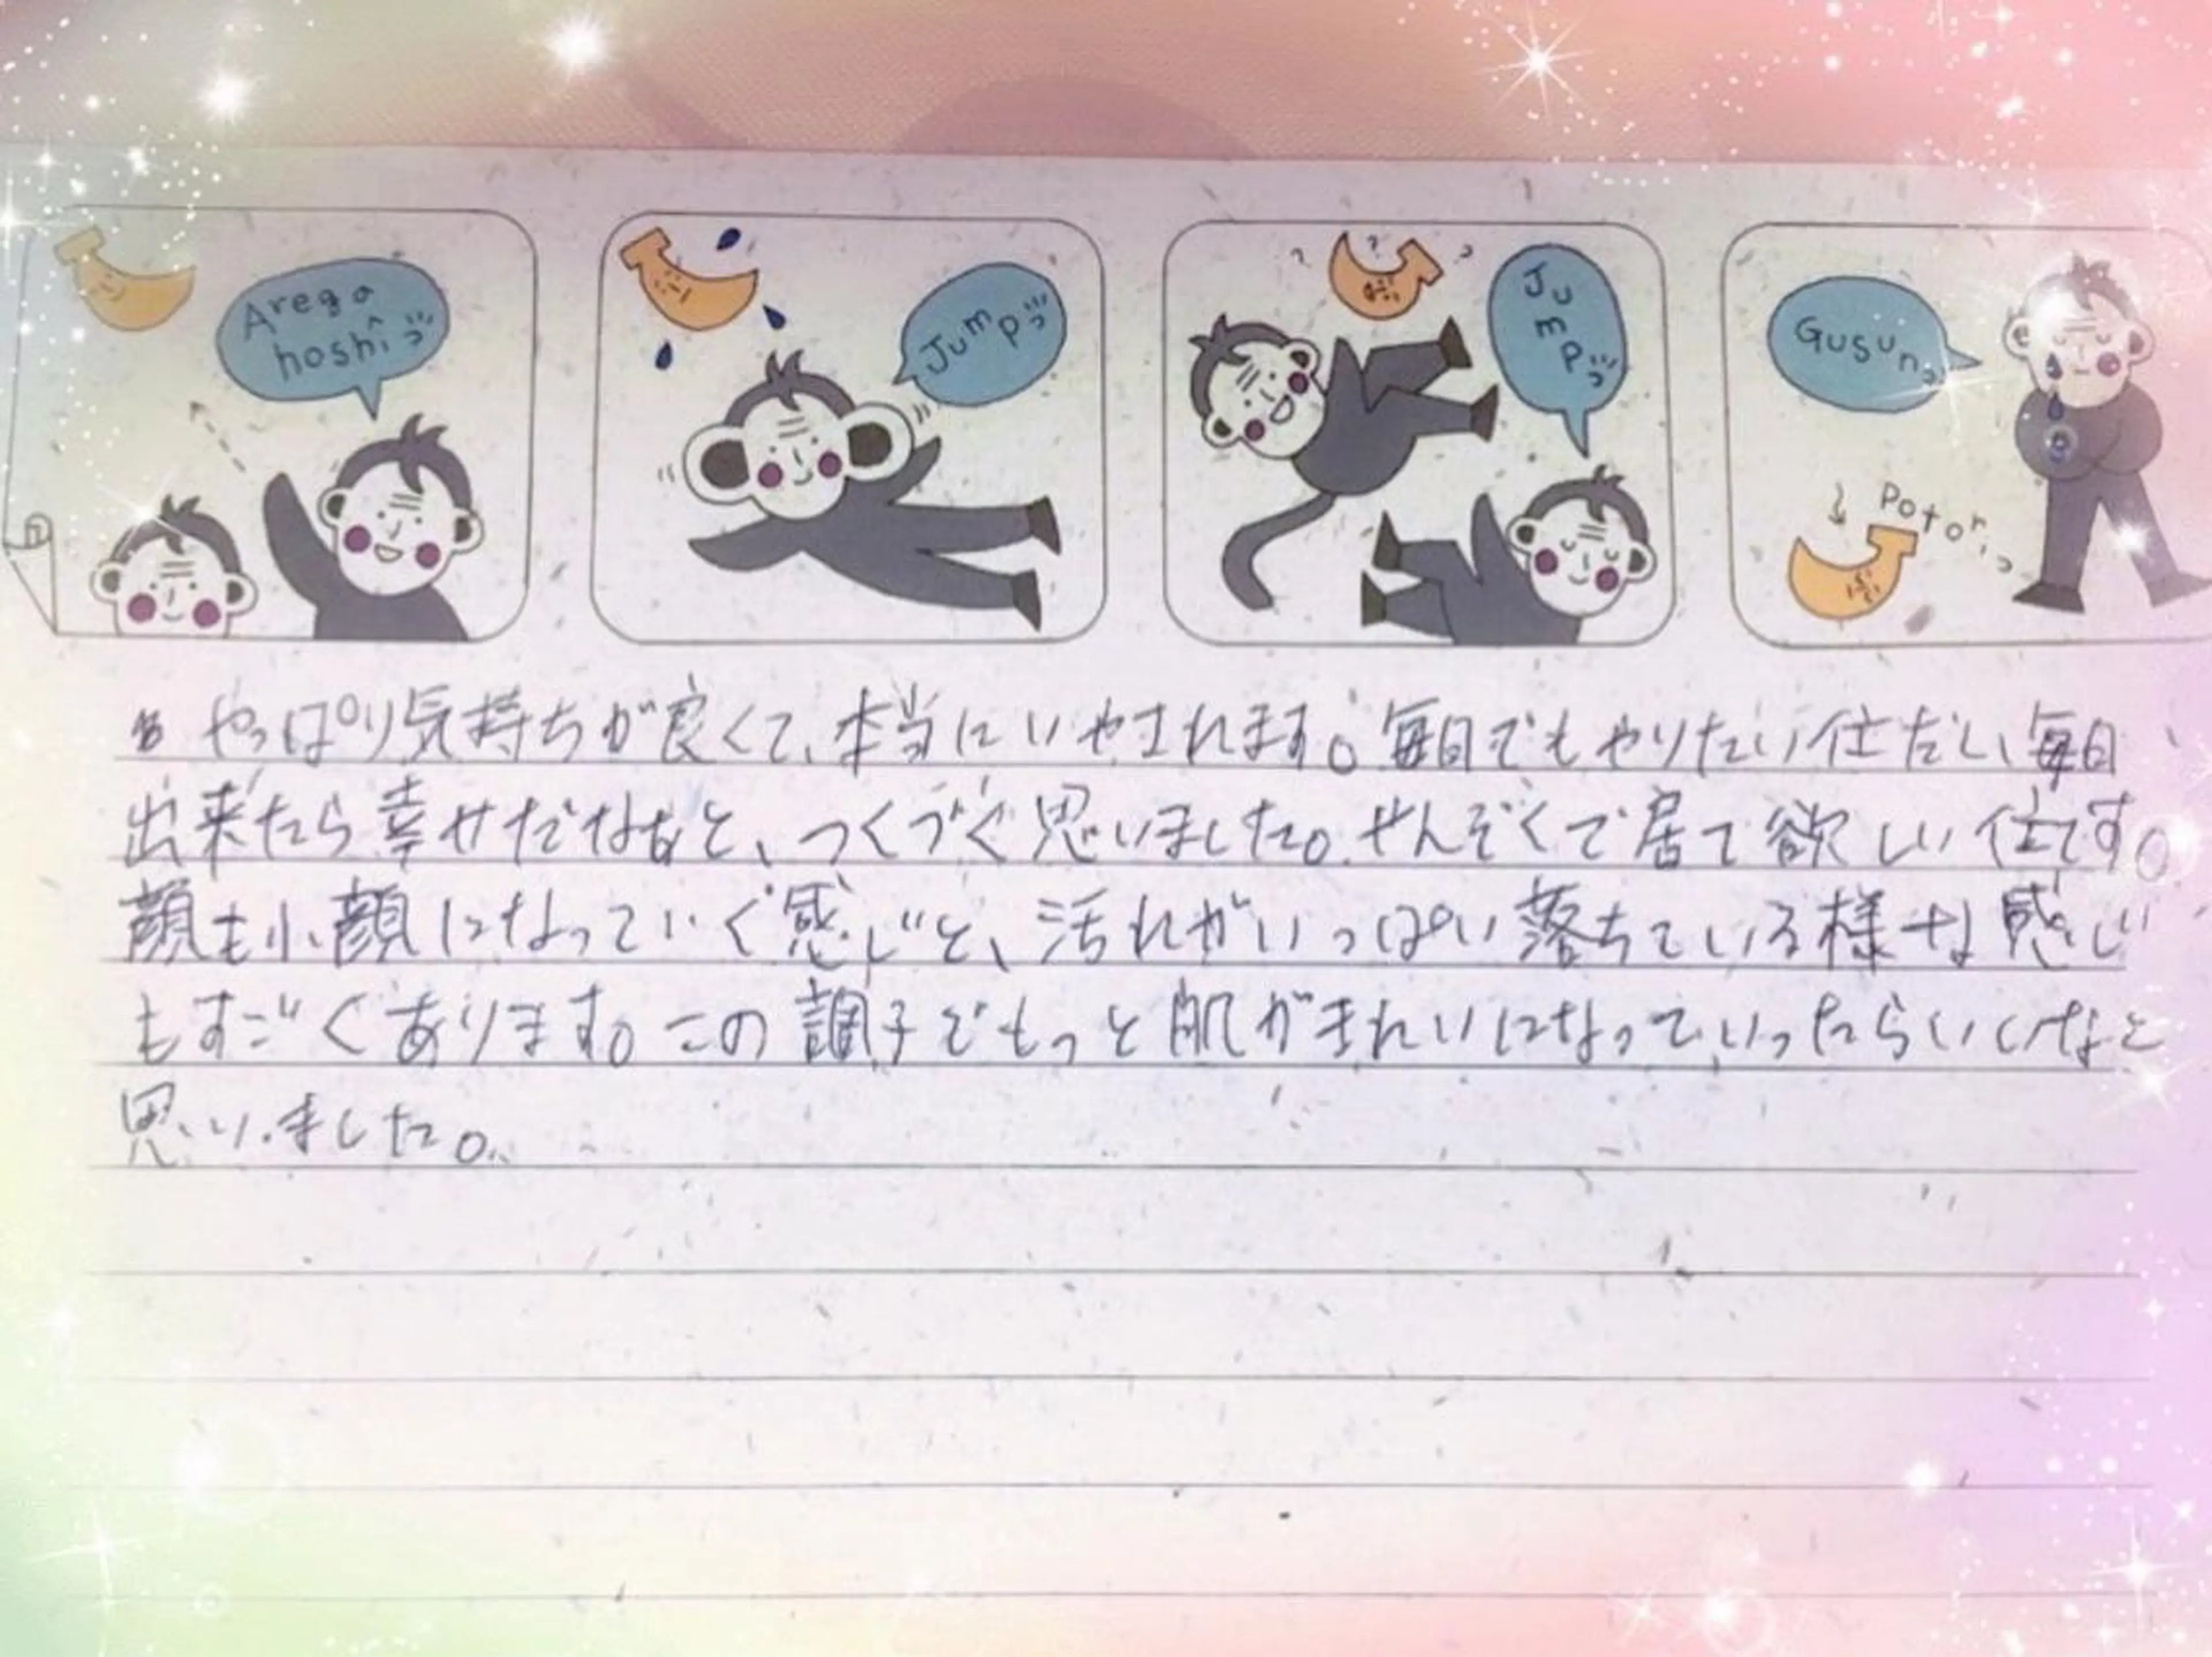 Arega
hoshî
Jump
Jump
Gusun
Potori
やっぱり気持ちが良くて、本当にいやされます。毎日でもやりたい位だし、毎日
出来たら幸せだなぁと、つくづく思いました。せんぞくで居て欲しい位です。
顔も小顔になっていく感じと、汚れがいっぱい落ちている様な感じ
もすごくあります。この調子でもっと肌がきれいになっていったらいいなと
思いました。